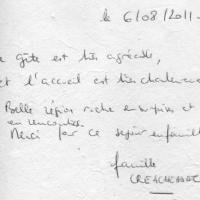 le 6/08/2011.
gîte est très agréable,
et l'accueil est très chaleureux
Belle région riche en et
en rencontres.
Merci pour ce séjour en famille
famille